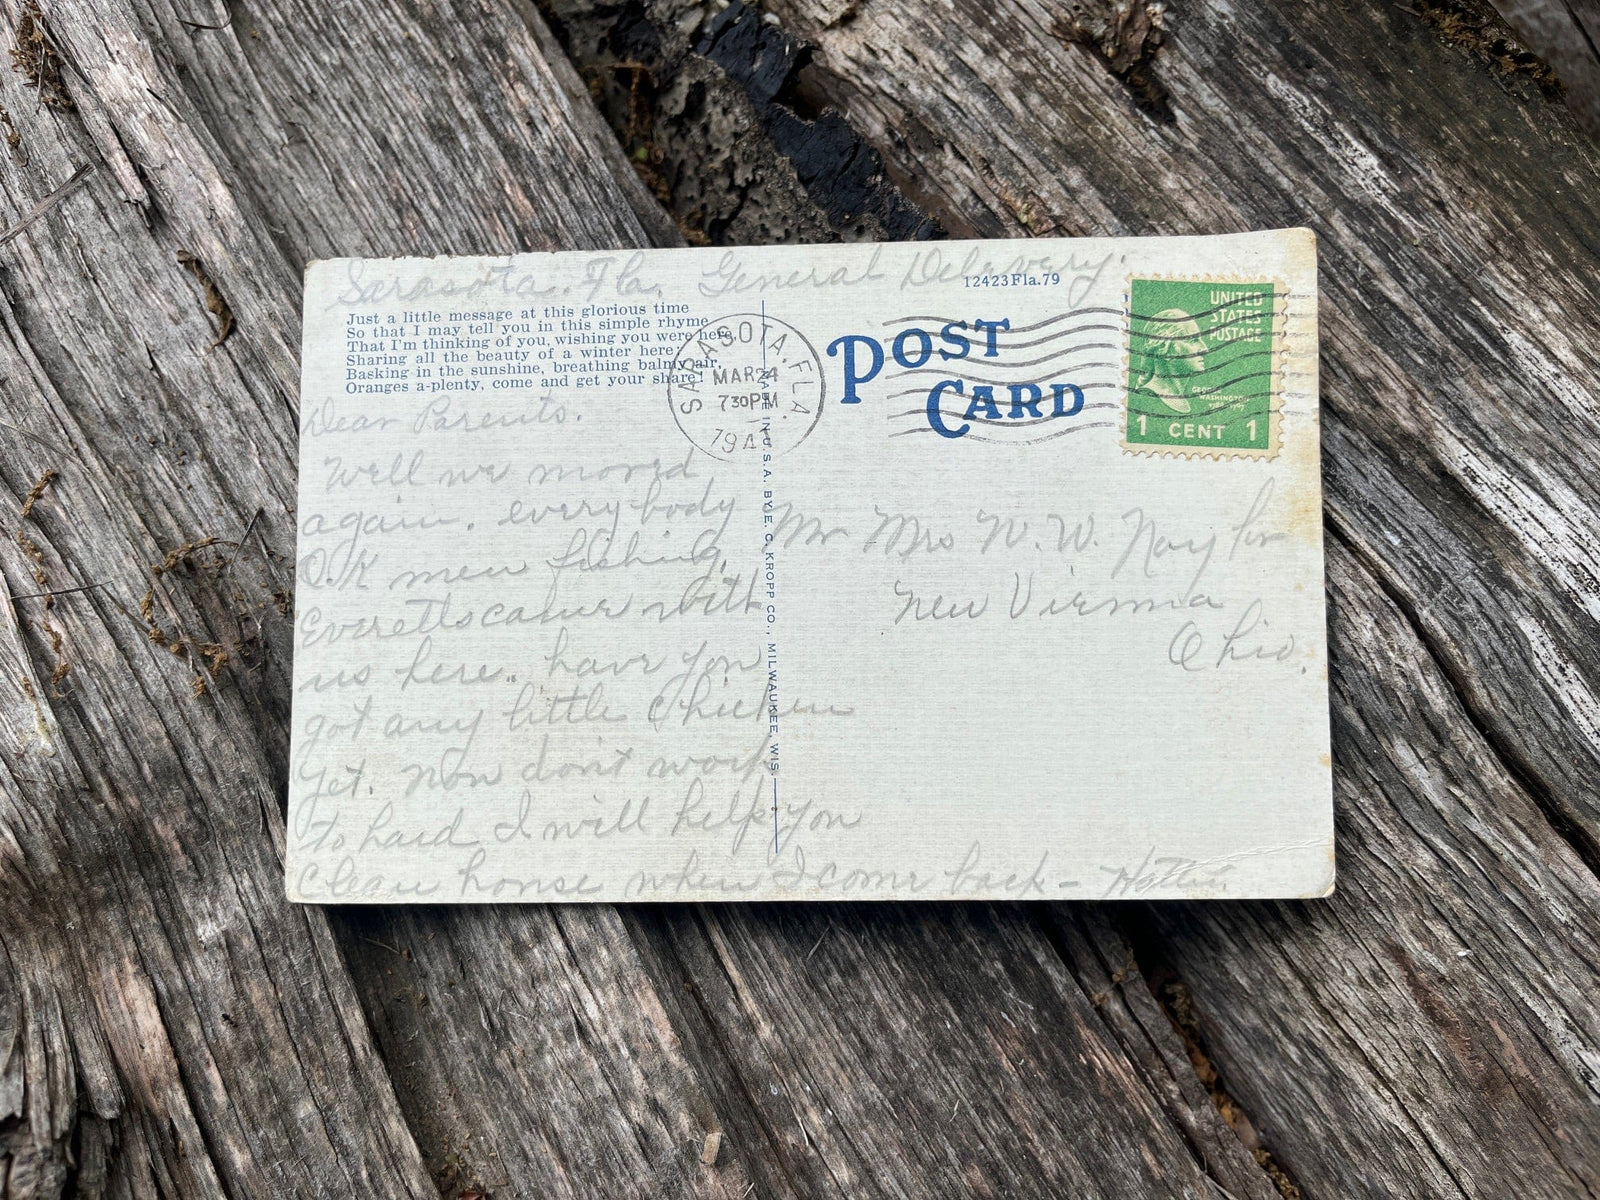 Sarasota. Fla. General Delevery.
12423Fla.79
Just a little message at this glorious time
So that I may tell you in this simple rhyme
That I'm thinking of you, wishing you were here
Sharing all the beauty of a winter here,
Basking in the sunshine, breathing balmy air,
Oranges a-plenty, come and get your share!
SARASOTA, FLA.
MAR 24
730PM
194
POST
CARD
UNITED
STATES
POSTAGE
GEORGE
WASHINGTON
1 CENT 1
Dear Parents.
Well we moved
again. everybody
O.K men fishing.
Everetts came with
us here. have you
got any little chicken
yet. now don't work
to hard I will help you
clean house when I come back - Hattie.
MADE IN U.S.A. BY E. C. KROPP CO., MILWAUKEE, WIS.
Mr Mrs W. W. Naylor
New Vienna
Ohio.